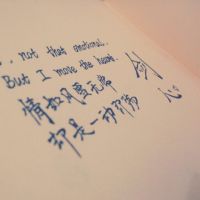 .. not that emotional.
But I made the heart
情如风雪无常
却是一动即伤
剑心